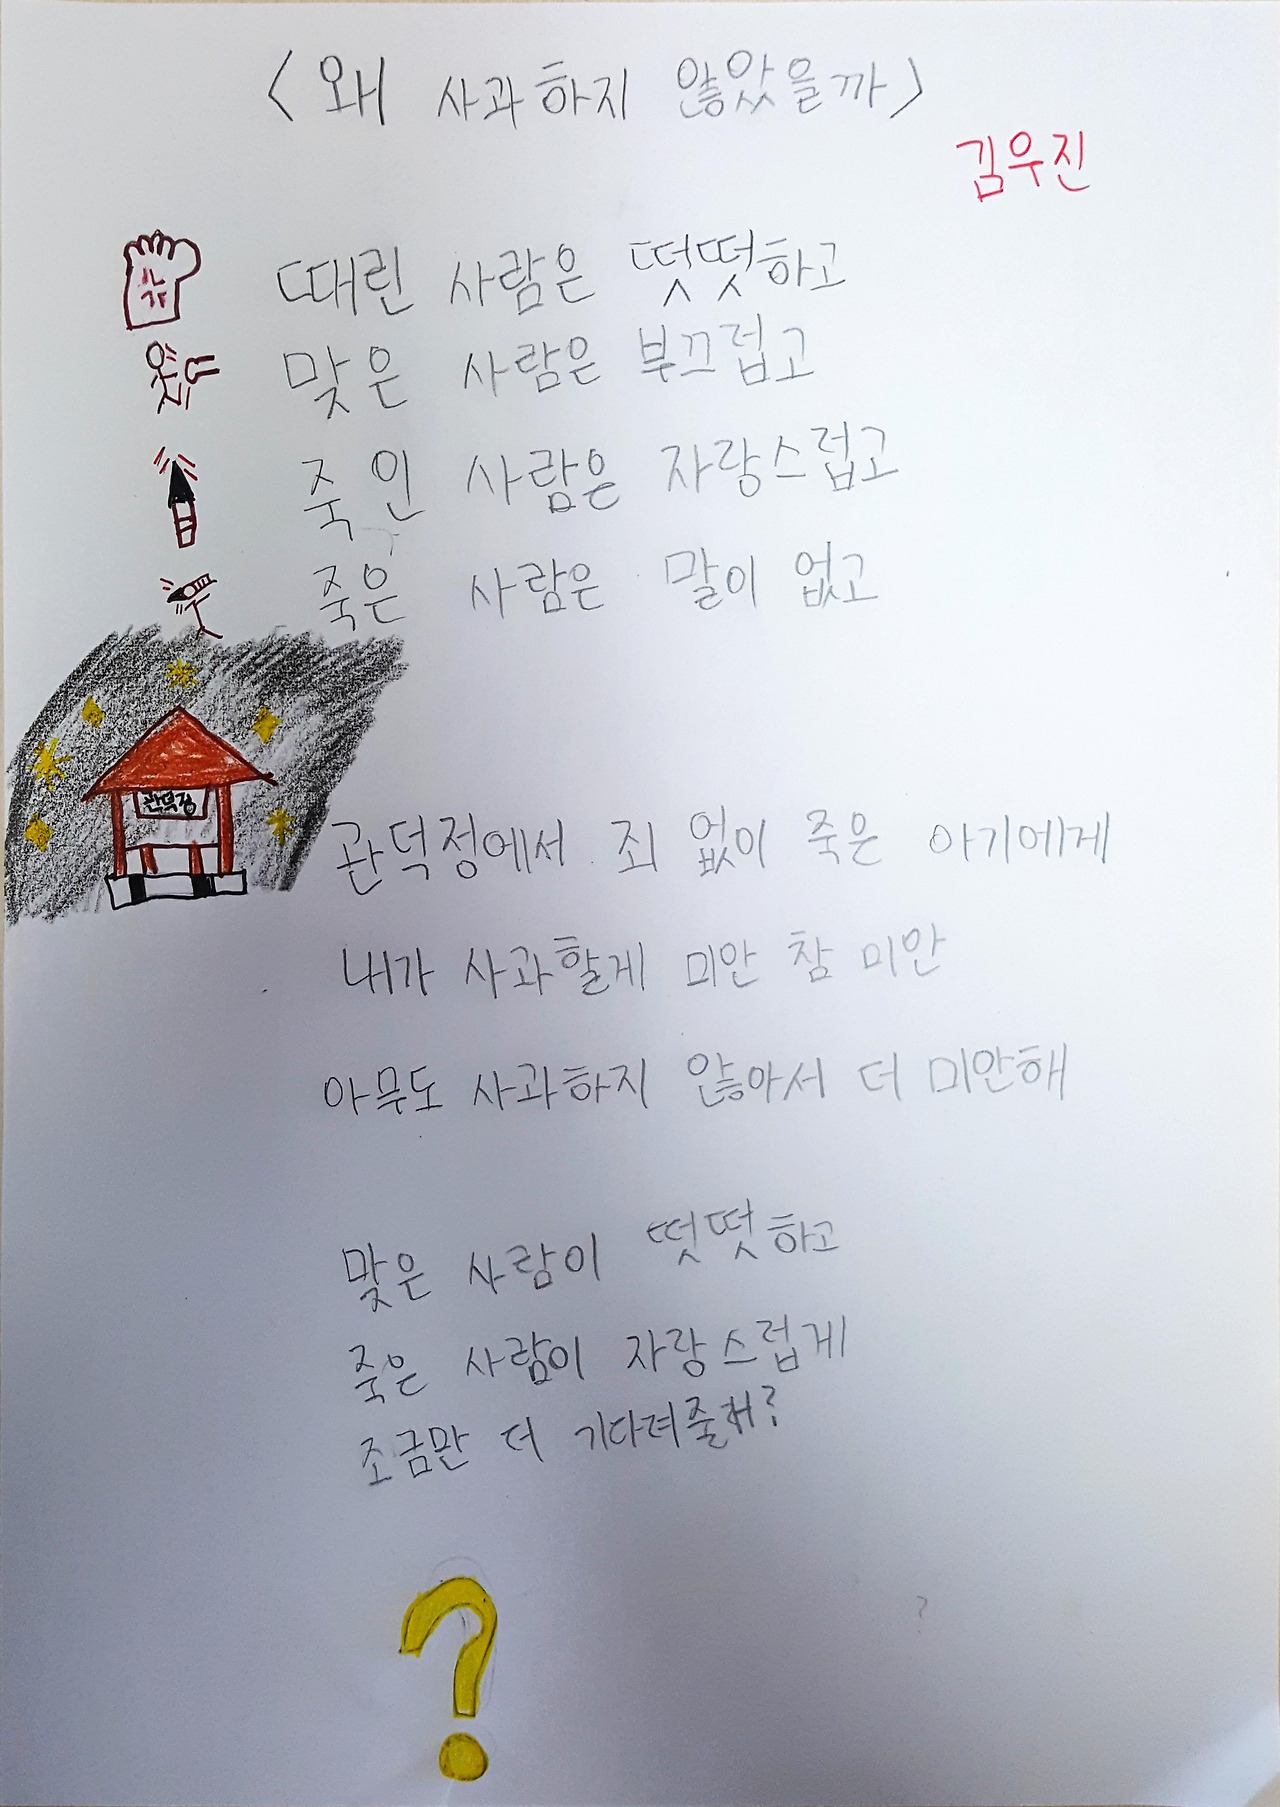 <왜 사과하지 않았을까>
김우진
때린 사람은 떳떳하고
맞은 사람은 부끄럽고
죽인 사람은 자랑스럽고
죽은 사람은 말이 없고
관덕정
관덕정에서 죄 없이 죽은 아기에게
내가 사과할게 미안 참 미안
아무도 사과하지 않아서 더 미안해
맞은 사람이 떳떳하고
죽은 사람이 자랑스럽게
조금만 더 기다려줄래?
?